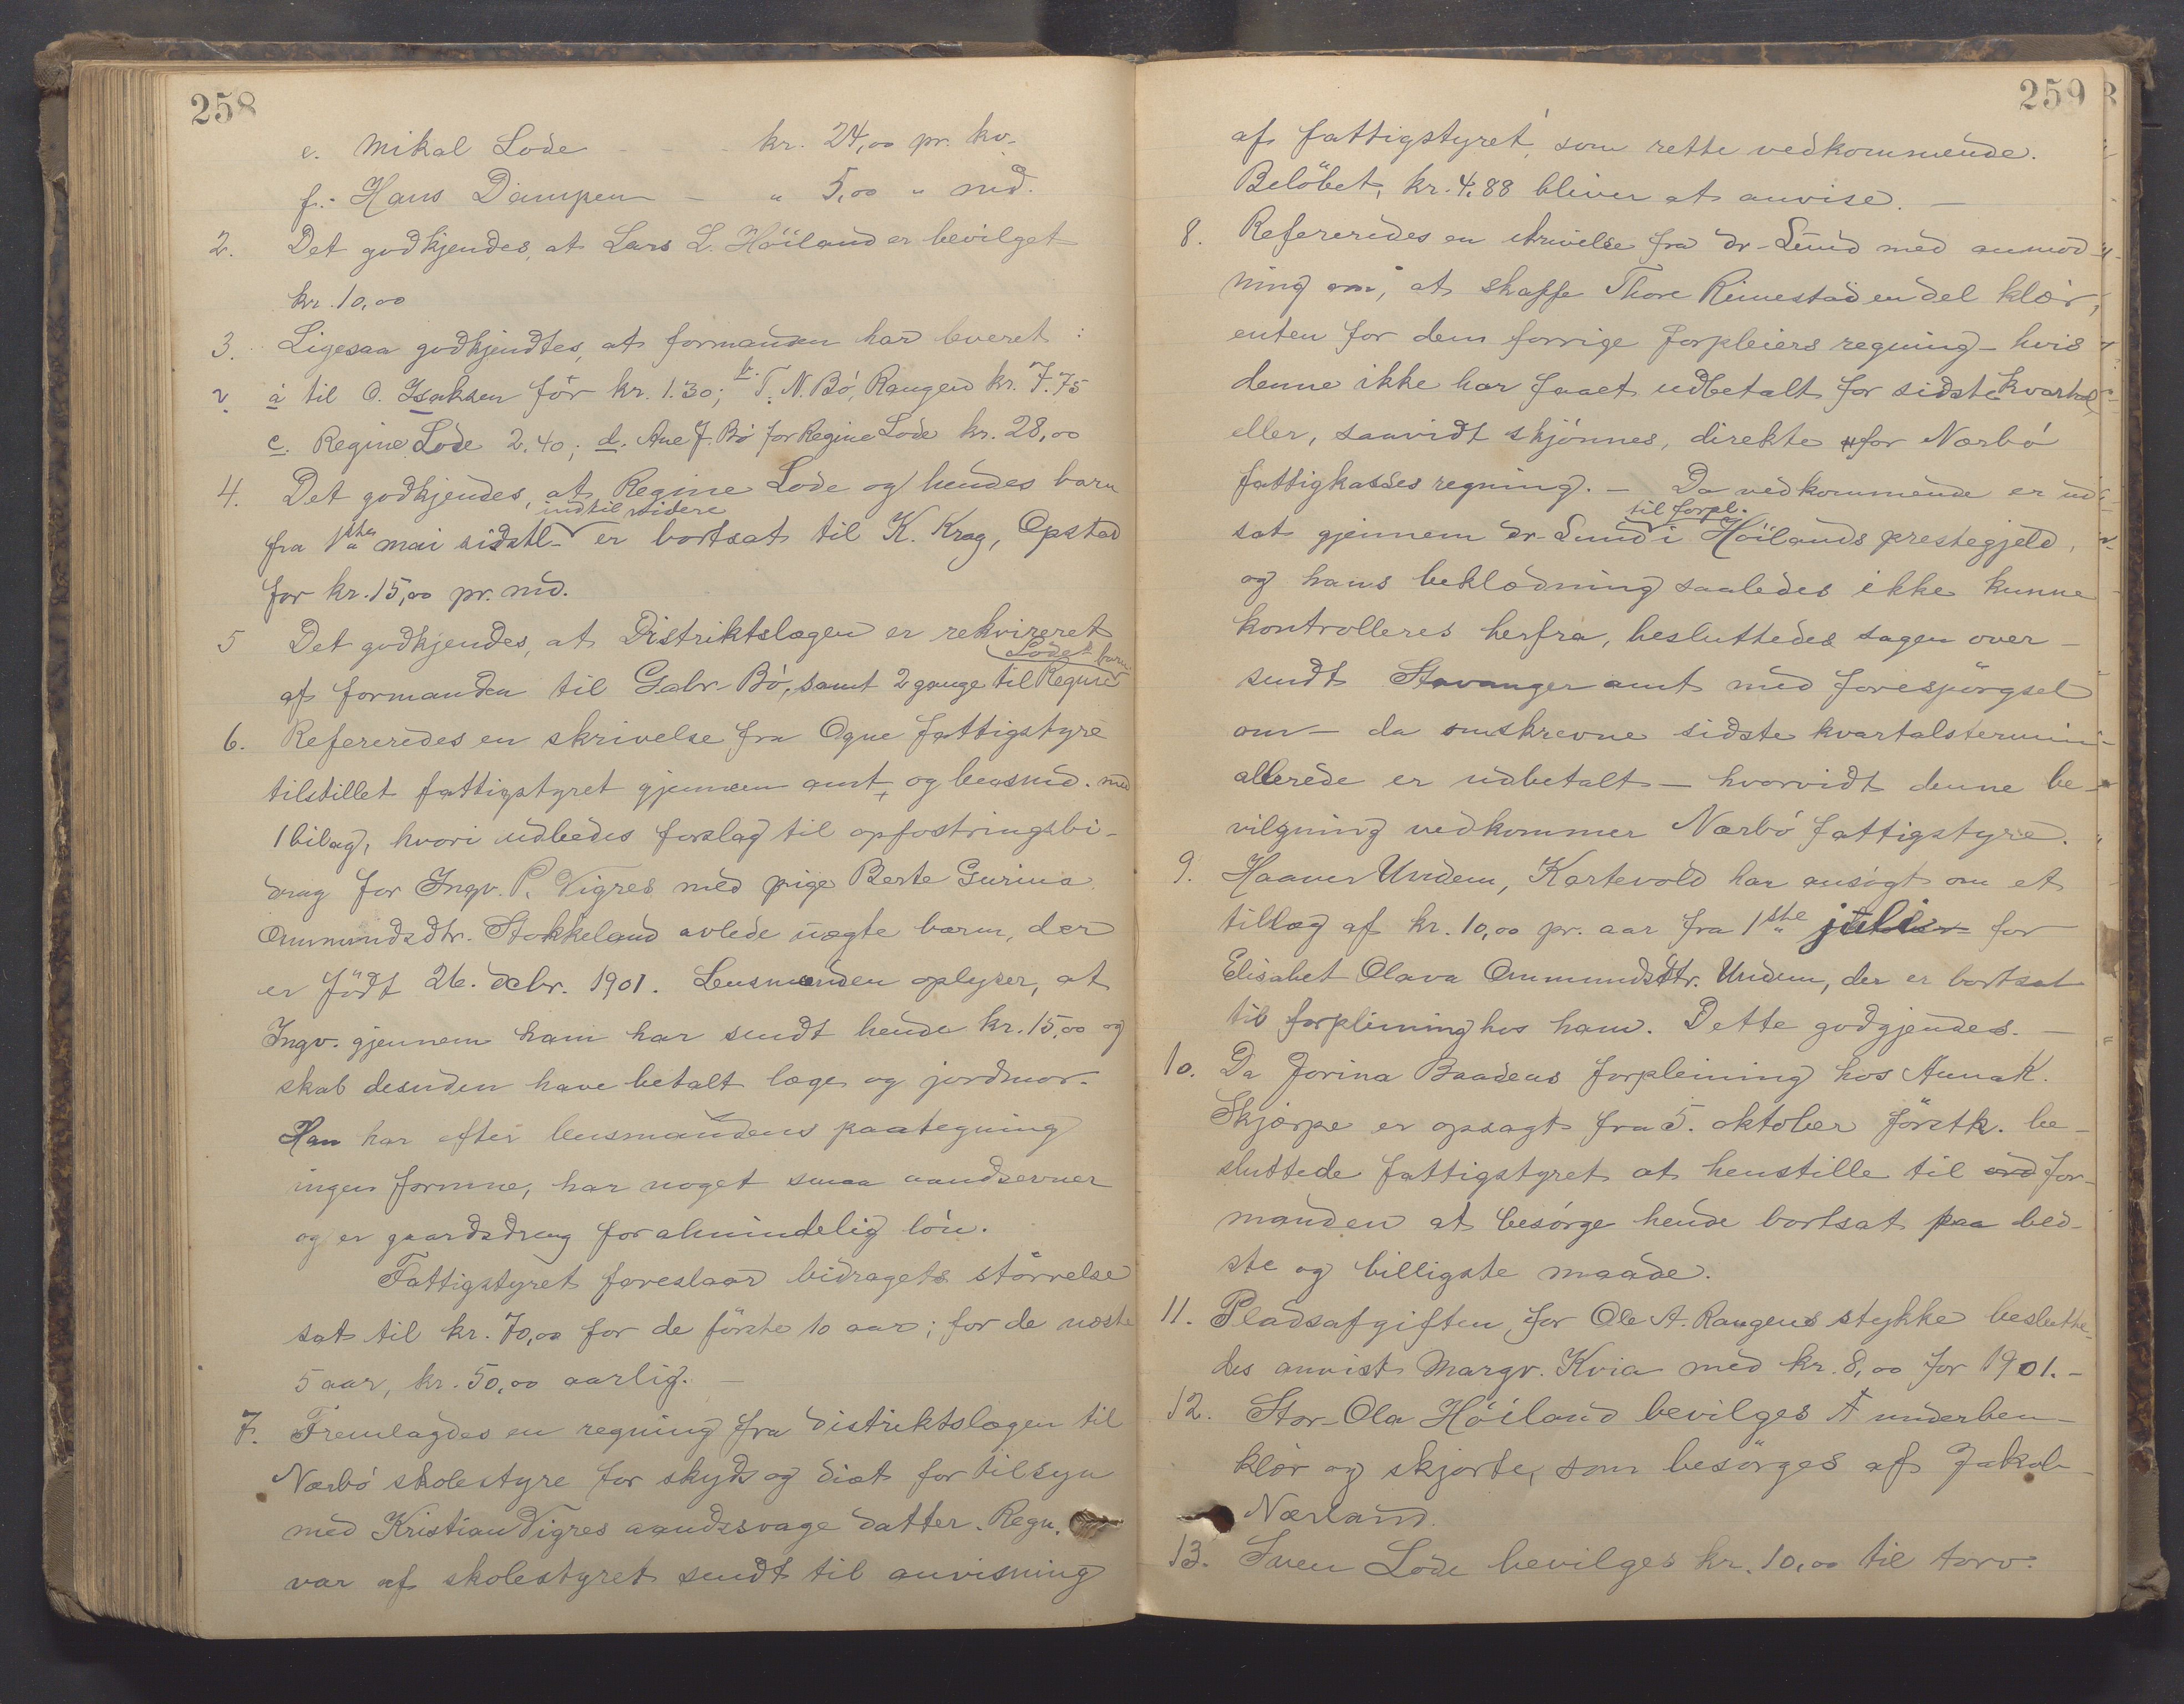 258
e. Mikal Lode - - - kr. 24,00 pr. kv.
f. Hans Dampen - " 5,00 " md.
2. Det godkjendes, at Lars L. Höiland er bevilget
kr. 10,00
3. Ligesaa godkjendtes, at formanden har leveret:
a til O. Isaksen för kr. 1.30; b. T. N. Bö, Raugen kr. 7.75
c. Regine Lode 2.40; d. Ane J. Bö for Regine Lode kr. 28,00
4. Det godkjendes, at Regine Lode og hendes barn
indtil videre
fra 1ste mai sidstl. er bortsat til K. Krag, Opstad
for kr. 15,00 pr. md.
5 Det godkjendes, at Distriktslægen er rekvireret
Lodes barn
af formanden til Gabr. Bö, samt 2 gange til Regine
6. Refereredes en skrivelse fra Ogne fattigstyre
tilstillet fattigstyret gjennem amt og lensmd. med
1 bilag, hvori udbedes forslag til opfostringsbi-
drag for Ingv. P. Vigres med pige Berte Gurina
Ommundsdtr. Stokkeland avlede uægte barn, der
er födt 26. decbr. 1901. Lensmanden oplyser, at
Ingv. gjennem ham har sendt hende kr. 15,00 og
skal desuden have betalt læge og jordmor.
Han har efter lensmandens paategning
ingen formue, har noget smaa aandsevner
og er gaardsdreng for almindelig lön.
Fattigstyret foreslaar bidragets störrelse
sat til kr. 70,00 for de förste 10 aar; for de næste
5 aar, kr. 50,00 aarlig. -
7. Fremlagdes en regning fra distriktslægen til
Nærbö skolestyre for skyds og diæt for tilsyn
med Kristian Vigres aandssvage datter. Regn.
var af skolestyret sendt til anvisning
259
af fattigstyret, som rette vedkommende.
Belöbet, kr. 4.88 bliver at anvise. -
8. Refereredes en skrivelse fra dr. Lund med anmod-
ning om, at skaffe Thore Rimestad en del klær,
enten for dem forrige forpleiers regning - hvis
denne ikke har faaet udbetalt for sidste kvartal,
eller, saavidt skjönnes, direkte for Nærbö
fattigkasses regning. - Da vedkommende er ud-
til forpl.
sat gjennem dr. Lund i Höilands prestegjeld,
og hans beklædning saaledes ikke kunne
kontrolleres herfra, besluttedes sagen over-
sendt Stavanger amt med forespörgsel
om - da omskrevne sidste kvartalstermin
allerede er udbetalt - hvorvidt denne be-
vilgning vedkommer Nærbö fattigstyre.
9. Haaver Undem, Kartevold har ansögt om et
tillæg af kr. 10,00 pr. aar fra 1ste juli for
Elisabet Olava Ommundsdtr. Undem, der er bortsat
til forpleining hos ham. Dette godgjendes. -
10. Da Jorina Baadens forpleining hos Anna K.
Skjærpe er opsagt fra 5. oktober förstk. be-
sluttede fattigstyret at henstille til for-
manden at besörge hende bortsat paa bed-
ste og billigste maade.
11. Pladsafgiften for Ole A. Raugens stykke beslutte-
des anvist Margr. Kvia med kr. 8,00 for 1901. -
12. Stor-Ola Höiland bevilges 1 underben-
klær og skjorte, som besörges af Jakob
Nærland.
13. Sven Lode bevilges kr. 10,00 til torv.